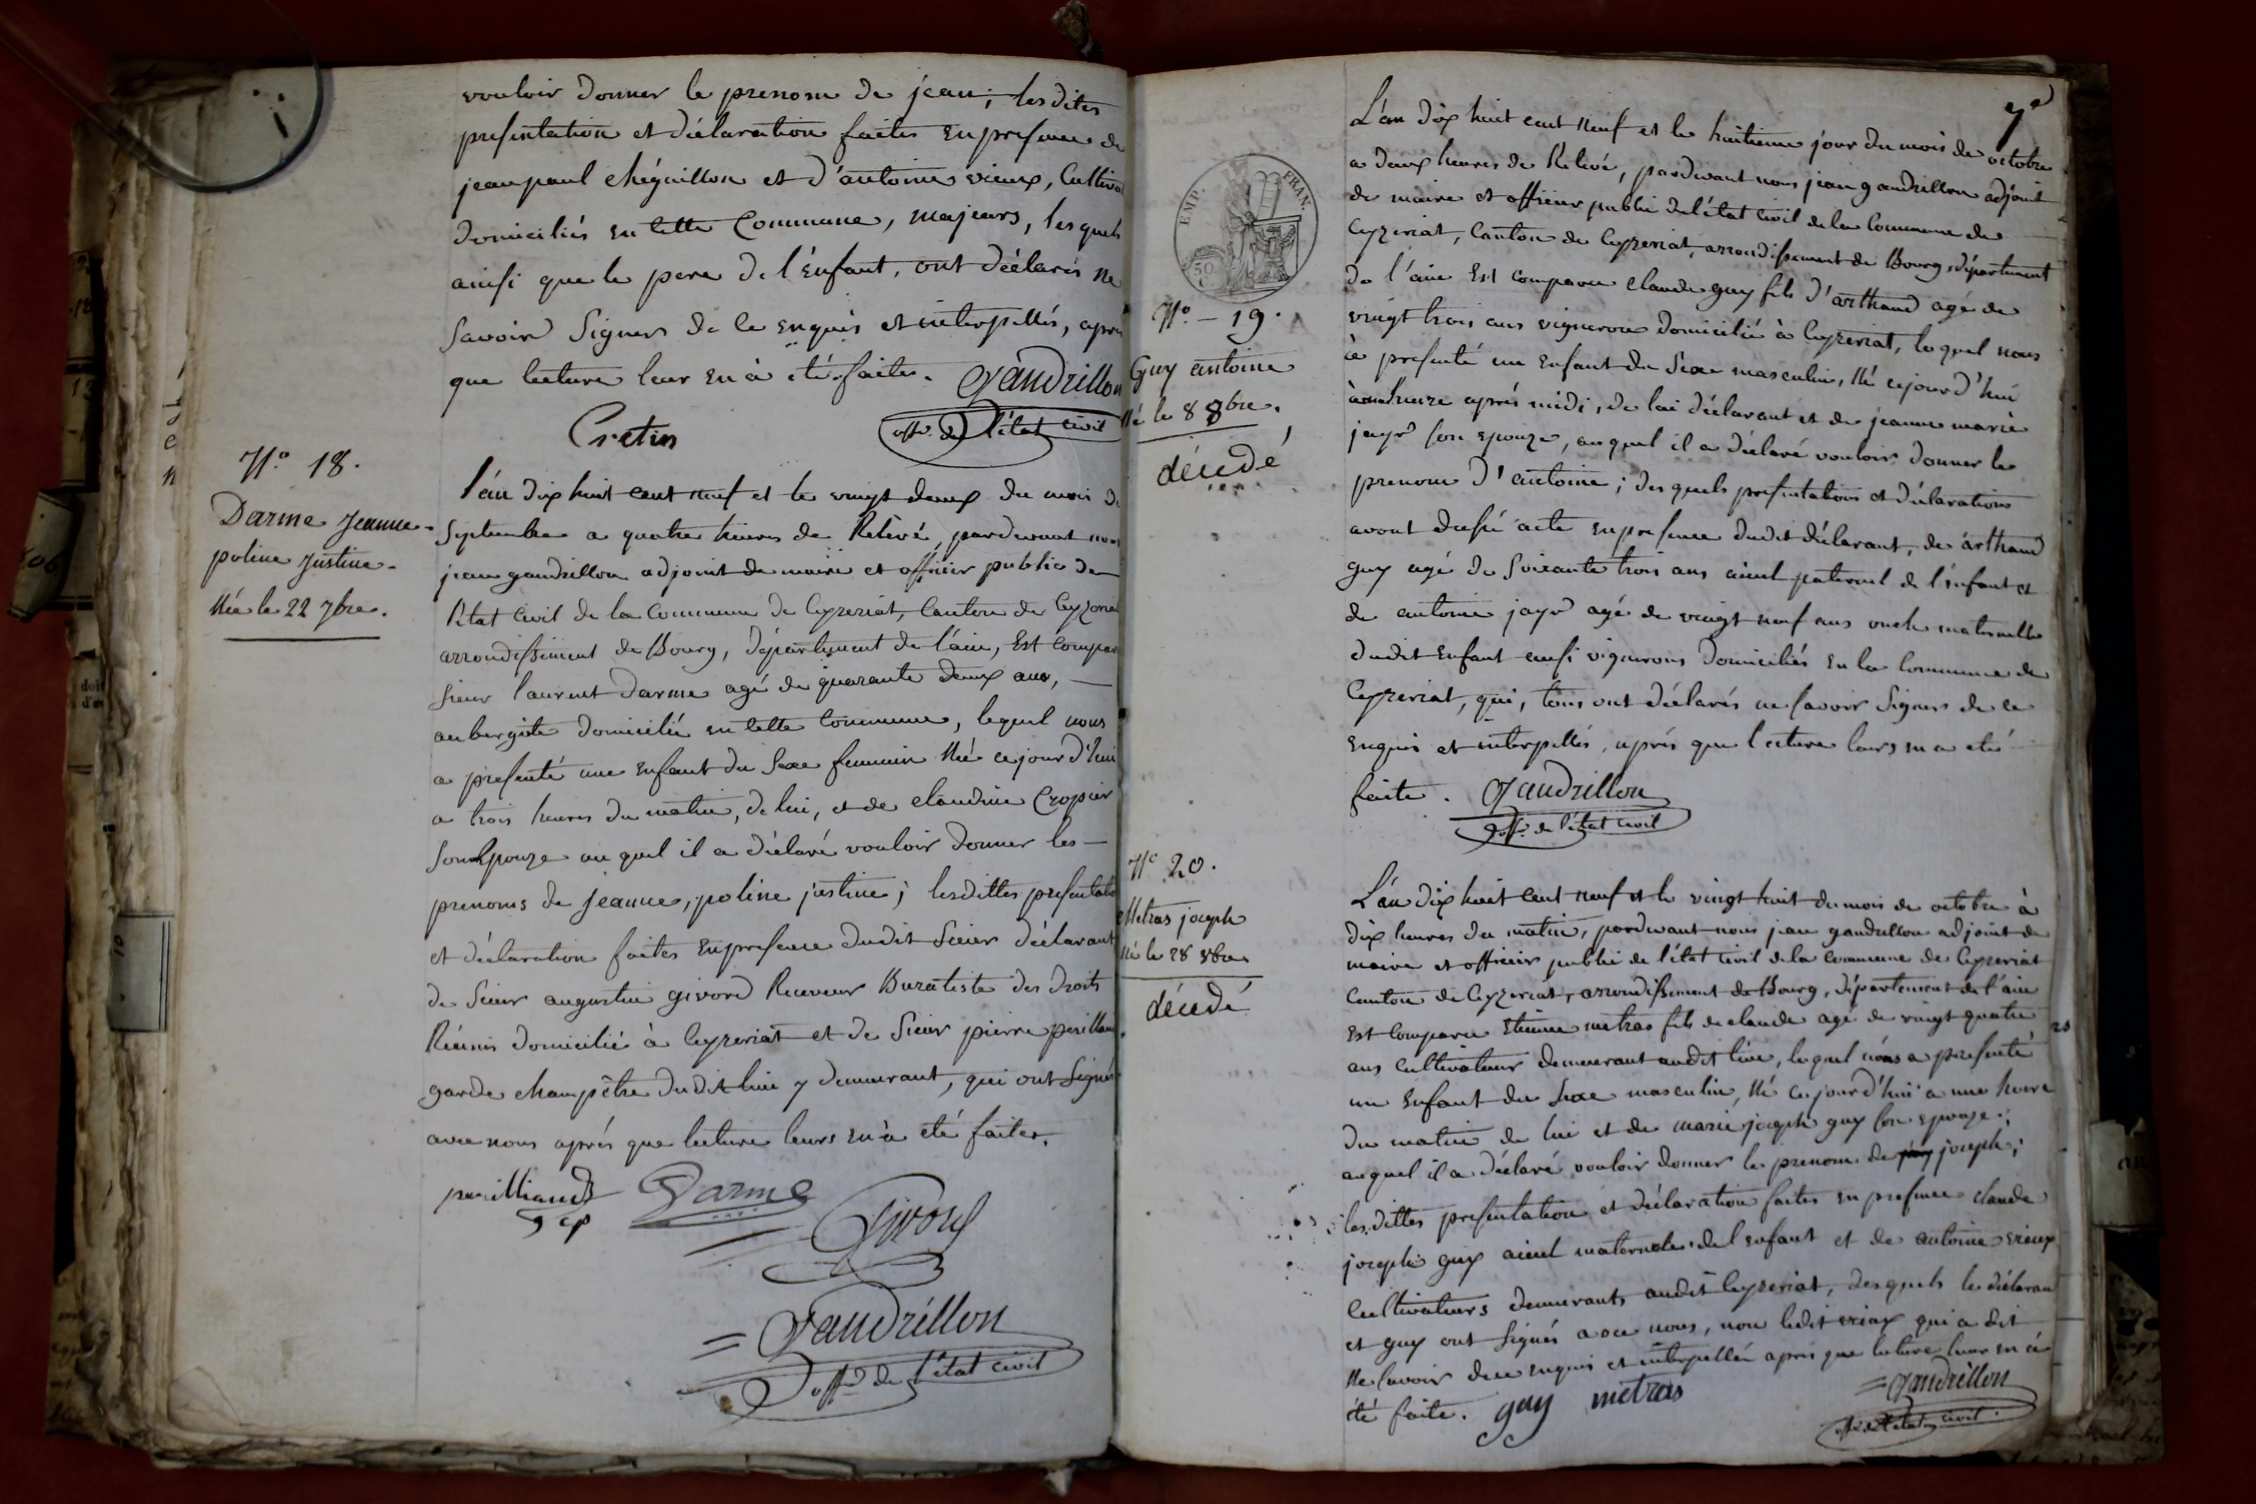 vouloir donner le prenom de jean; lesdites
presentation et déclaration faites en presence de
jean paul chéguillon et d'antoine vieux, Cultiva
domiciliés en cette Commune, majeurs, lesquels
ainsi que le pere de l'énfant, ont déclarés ne
Savoir Signer de ce enquis et interpellés, aprés
que lecture leur en à été faite. Gandrillon
Cretin offr. de l'état civil
N.o 18.
Darme Jeanne
poline Justine
Née le 22 7bre.
l'an dix huit cent neuf et le vingt deux du mois de
Septembre a quatre heures de Relevé, pardevant nous
jean gandrillon adjoint de maire et officier public de
l'état Civil de la Commune de Ceyzeriat, Canton de Ceyzeria
arrondissement de Bourg, département de l'ain, Est compar
sieur laurent Darme agé de quarante deux ans,
aubergiste domicilié en cette Commune, lequel nous
a presenté une enfant du Sexe feminin Née cejourd'hui
a trois heures du matin, de lui, et de claudine Cropier
son Epouze au quel il a déclaré vouloir donner les
prenoms de Jeanne, poline justine; lesdittes presentatio
et déclaration faites en presence dudit Sieur déclarant
de Sieur augustin givord Receveur Buraliste des droits
Réunis domicilié à Ceyzeriat et de Sieur pierre perilliand
garde champêtre dudit lieu y demeurant, qui ont Signé
avec nous aprés que lecture leurs en à été faites.
perilliand Darme
gcp Givord
Gandrillon
offr. de l'état civil
7e
EMP. FRAN.
50 C
N.o 19.
Guy antoine
Né le 8 8bre.
décédé
L'an dix huit cent neuf et le huitieme jour du mois de octobre
a deux heures de Relevé, pardevant nous jean gandrillon adjoint
de maire et officier public de l'état Civil de la Commune de
Ceyzeriat, Canton de Ceyzeriat, arrondissement de Bourg, département
de l'ain Est comparu claude guy fils d'arthaud agé de
vingt trois ans vigneron domicilié à Ceyzeriat, lequel nous
à presenté un enfant du Sexe masculin, Né cejourd'hui
à une heure aprés midi, de lui déclarant et de jeanne marie
jayr son epouze, auquel il a déclaré vouloir donner le
prenom d'antoine; desquels presentations et déclarations
avont dressé acte en presence dudit déclarant, de arthaud
guy agé de Soixante trois ans aieul paternel de l'énfant et
de antoine jayr agé de vingt neuf ans oncle maternelle
dudit Enfant aussi vignerons domiciliés en la Commune de
Ceyzeriat, qui, tous ont déclarés ne savoir Signer de ce
enquis et interpellés, aprés que lecture leurs en a eté
faite. Gandrillon
offr. de l'état civil
N.o 20.
Metras joseph
Né le 28 8bre
décédé
L'an dix huit Cent neuf et le vingt huit du mois de octobre à
dix heures du matin, pardevant nous jean gandrillon adjoint de
maire et officier public de l'état Civil de la Commune de Ceyzeriat
Canton de Ceyzeriat, arrondissement de Bourg, département de l'ain
Est comparu Etienne metras fils de claude agé de vingt quatre
ans Cultivateur demeurant audit lieu, lequel nous a presenté
un enfant du Sexe masculin, Né cejourd'hui a une heure
du matin de lui et de marie joseph guy son epouze;
auquel il a déclaré vouloir donner le prenom de joseph;
lesdittes presentation et déclaration faites en presence claude
joseph guy aieul maternele de l'enfant et de antoine vieux
Cultivateurs demeurants audit Ceyzeriat, desquels le déclaran
et guy ont Signés avec nous, non ledit vieux qui a dit
Ne savoir de ce enquis et interpellée aprés que lecture leur en à
été faite. guy metras Gandrillon
offr. de l'état civil.